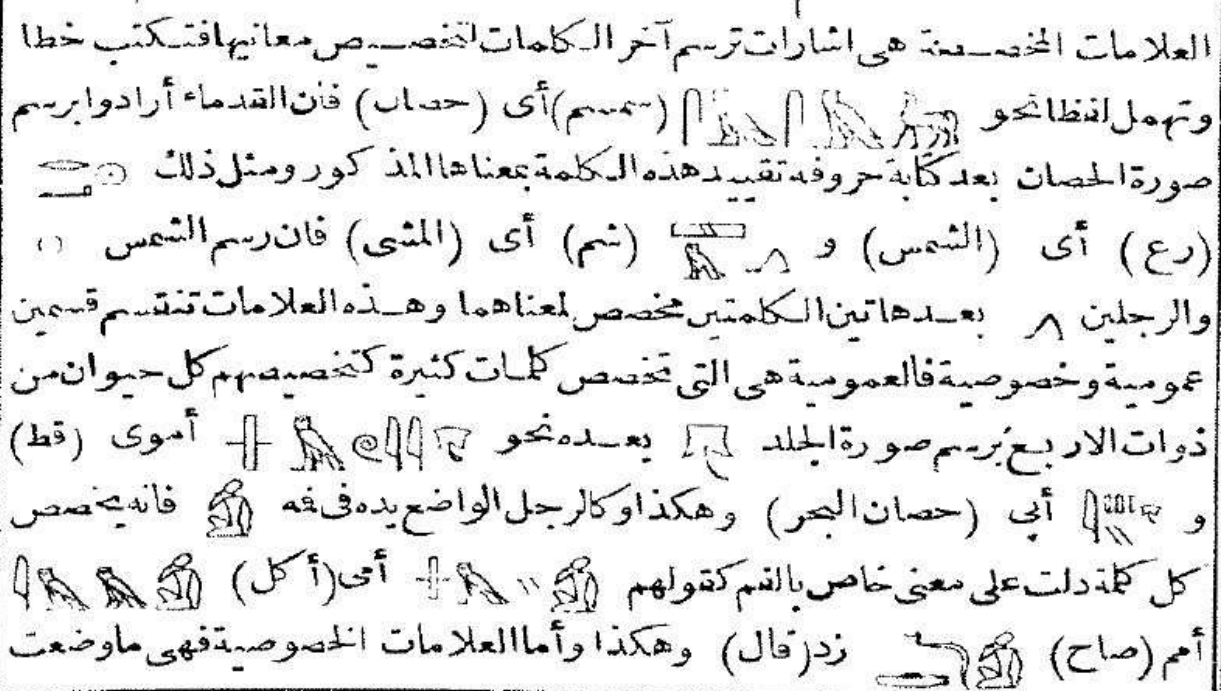 العلامات المخصصة هى اشارات ترسم آخر الكلمات لتخصيص معانيها فتكتب خطا
وتهمل لفظا نحو 𓋴𓅓𓋴𓅓 (سمسم) أى (حصان) فان القدماء أرادوا برسم
صورة الحصان بعد كتابة حروفه تقييد هذه الكلمة بمعناها المذكور ومثل ذلك 𓂋𓂝𓇳
(رع) أى (الشمس) و 𓈙𓅓𓂻 (شم) أى (المشى) فان رسم الشمس 𓇳
والرجلين 𓂻 بعد هاتين الكلمتين مخصص لمعناهما وهذه العلامات تنقسم قسمين
عمومية وخصوصية فالعمومية هى التى تخصص كلمات كثيرة كتخصيصهم كل حيوان من
ذوات الاربع برسم صورة الجلد 𓄛 بعده نحو أموى (قط)
و أبي (حصان البحر) وهكذا وكالرجل الواضع يده فى فه 𓀁 فانه يخصص
كل كلمة دلت على معنى خاص بالفم كقولهم أمى (أكل)
أمم (صاح) زد (قال) وهكذا وأما العلامات الخصوصية فهى ماوضعت